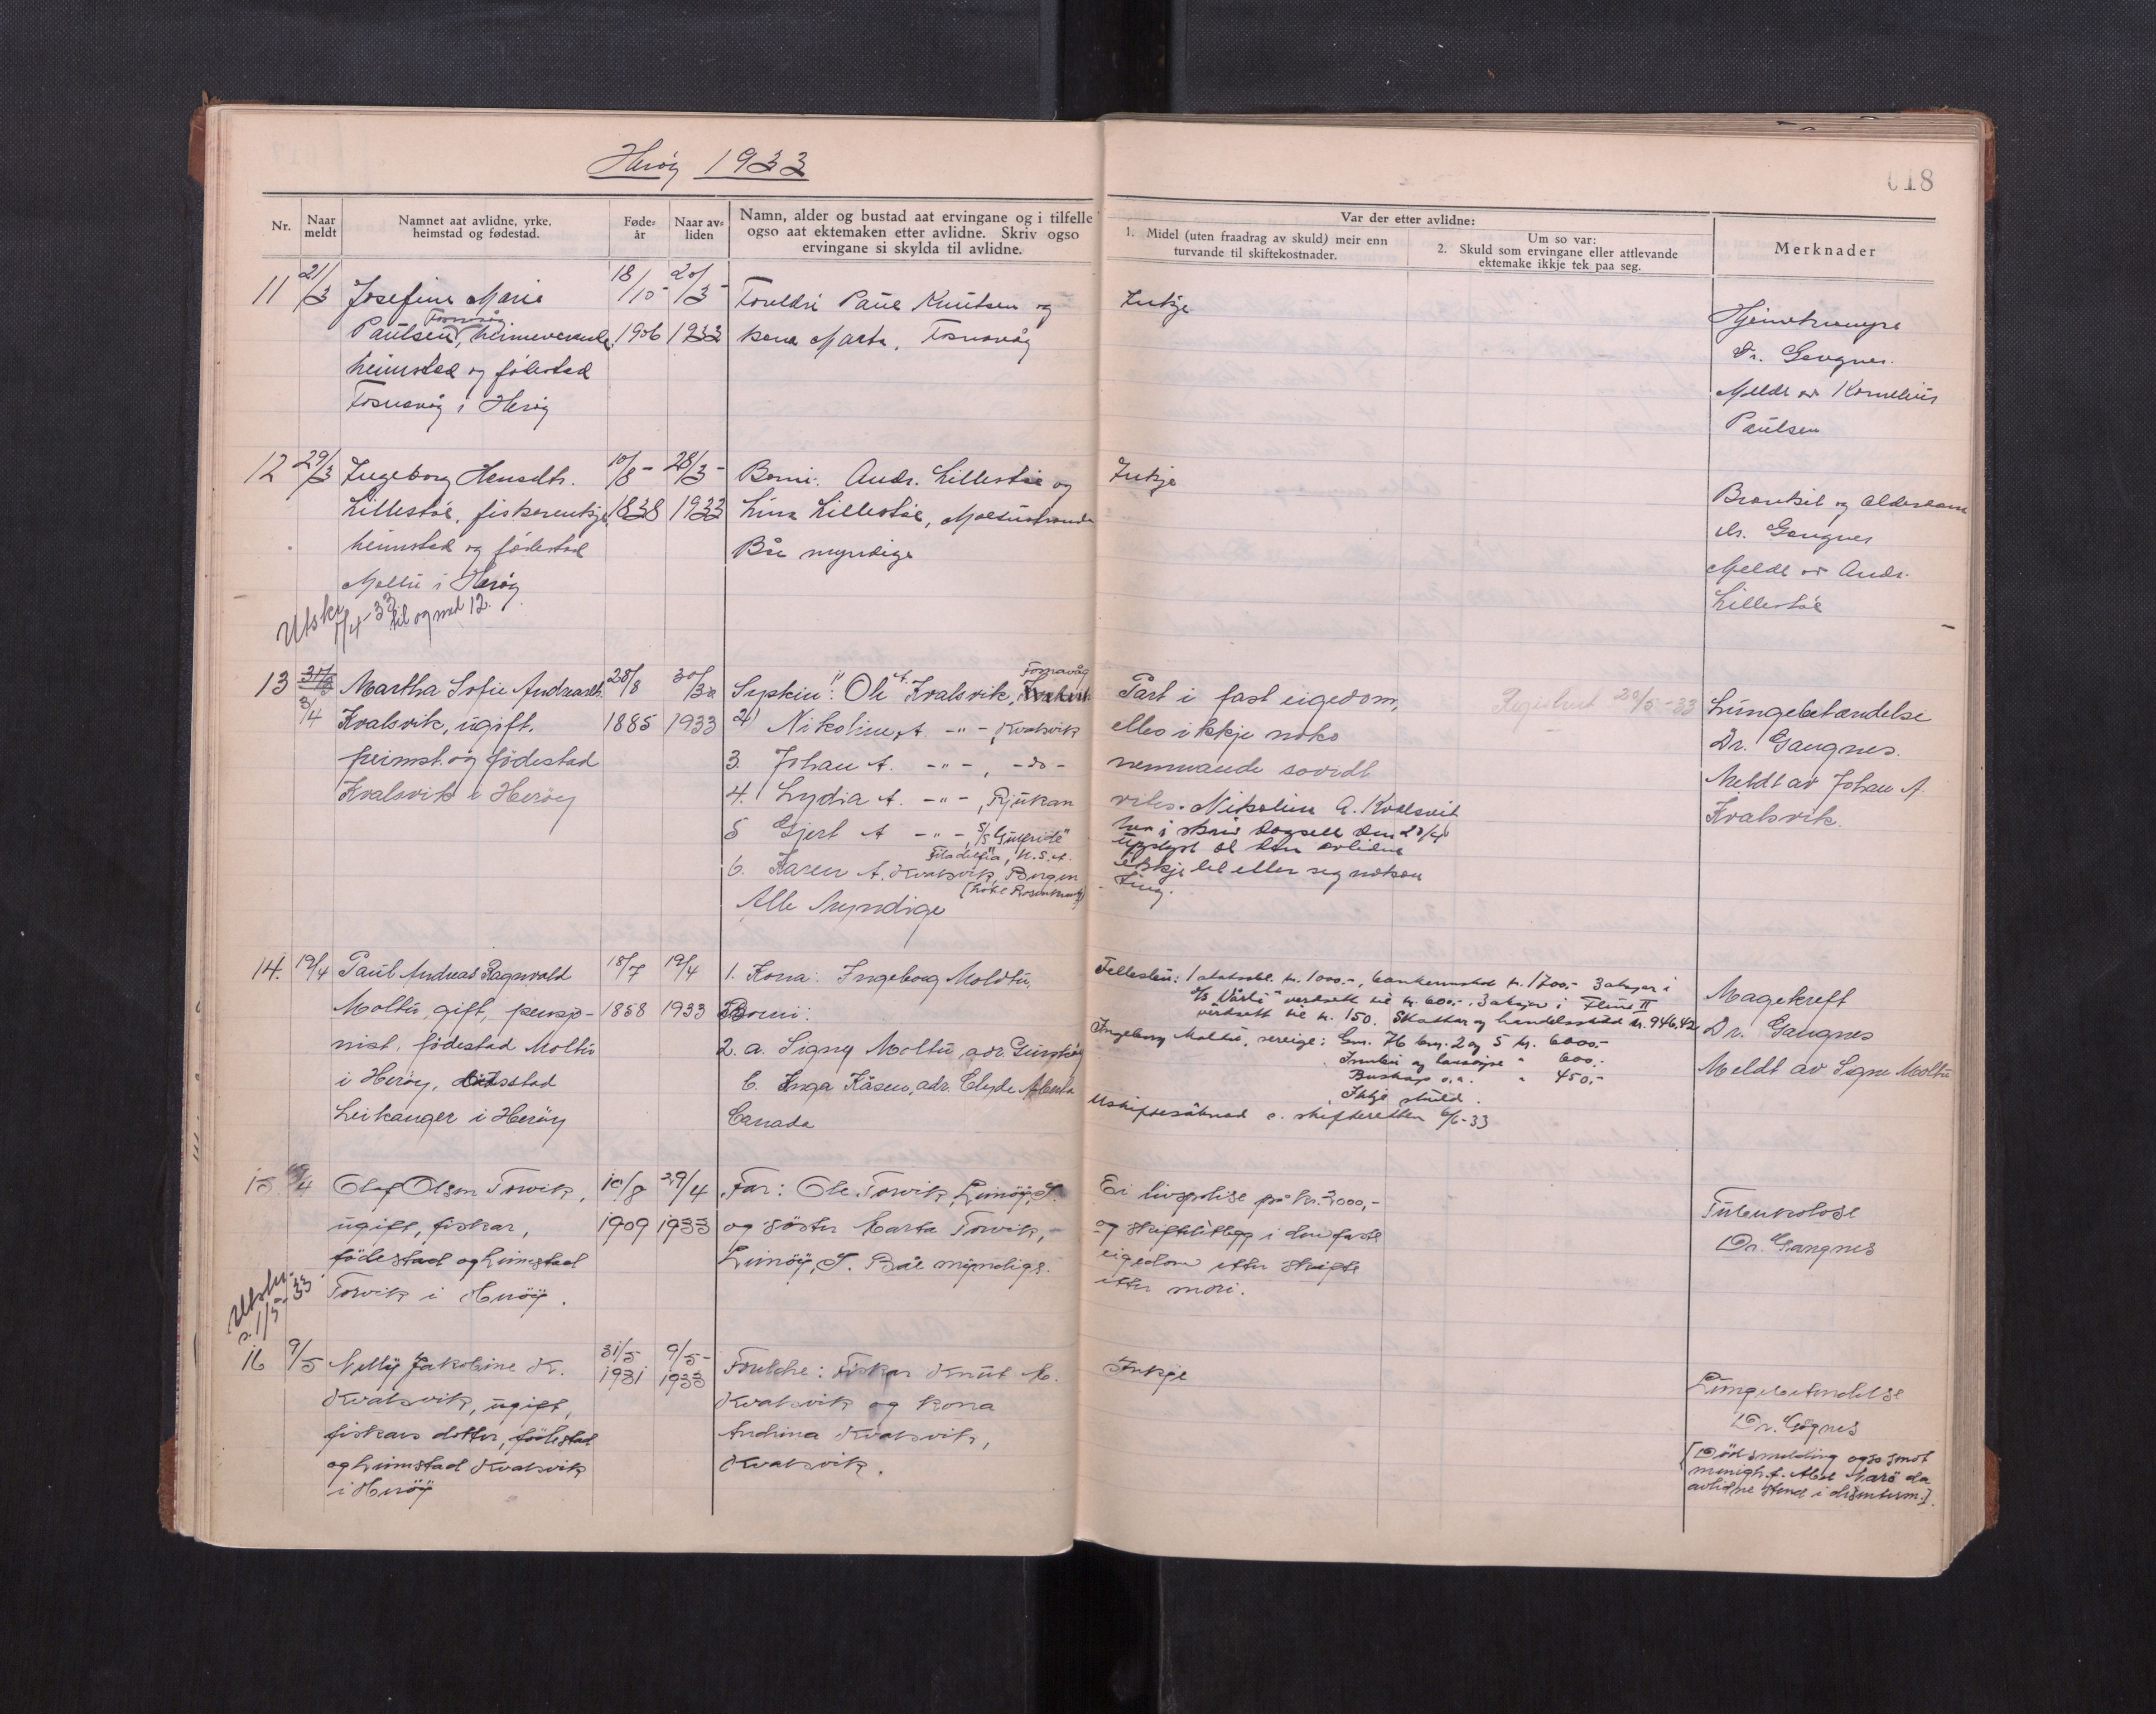 Herøy 1933
018
Nr.
Naar meldt
Namnet aat avlidne, yrke, heimstad og fødestad.
Føde-år
Naar av-liden
Namn, alder og bustad aat ervingane og i tilfelle ogso aat ektemaken etter avlidne. Skriv ogso ervingane si skylda til avlidne.
Var der etter avlidne:
1. Midel (uten fraadrag av skuld) meir enn turvande til skiftekostnader.
Um so var:
2. Skuld som ervingane eller attlevande ektemake ikkje tek paa seg.
Merknader
11 21/3 Josefine Marie 18/10- 20/3- Foreldri Paul Knutsen og Inkje
Fosnavåg
Paulsen, 1906 1933 kona Marta, Fosnavåg
heimstad og fødestad
Fosnavåg i Herøy
Dr. Gangnes.
Meldt av Kornelius
Paulsen
12 29/3 Ingeborg Hensdtr. 10/8- 28/3- Borni: Andr. Lillestøl og Inkje
Lillestøl, fiskarenkje, 1838 1933 Lina Lillestøl, Moltustranda
heimstad og fødestad Båe myndige
Moltu i Herøy
Utskr. 1/4-33 til og med 12.
Bronkit og
Dr. Gangnes
Meldt av Andr.
Lillestøl
13 31/3 Martha Sofie Andreasdtr. 28/8 30/3 Syskin: 1) Ole A. Kvalsvik, Fosnavåg
3/4 Kvalsvik, ugift, 1885 1933 2) Nikoline A. -"- , Kvalsvik
heimst. og fødestad 3. Johan A. -"-, -do-
Kvalsvik i Herøy 4. Lydia A. -"-, Rjukan
5 Gjert A -"-, S/S
Filadelfia, U.S.A.
6. Karen A. Kvalsvik, Bergen
(Hotel Rosenkrantz)
Alle Myndige
Part i fast eigedom,
elles ikkje noko
nemnande sovidt
vites. Nikoline A. Kvalsvik
har i skriv dagsett den 28/4
upplyst at den avlidne
ikkje let etter seg nokon
ting.
Registrert 29/5-33
Lungebetændelse
Dr. Gangnes.
Meldt av Johan A
Kvalsvik.
14. 19/4 Paul Andreas Ragnvald 18/7 19/4 1. Kona: Ingeborg Moldtu,
Moltu, gift, pensjo- 1858 1933 Borni:
nist, fødestad Moltu 2. a. Signy Moltu, adr.
i Herøy, bustad b. Inga Kåsen, adr. Clyde Alberta
Leikanger i Herøy Canada
Felleseiu: 1 statsobl. kr. 1000.-, bankinnskot kr. 1700,- 3 aksjer i
verdsett til kr. 600.-. 3 aksjer i II
verdsett til kr. 150. Skattar og handelsskuld kr. 946,42
Ingeborg Moltu, sereige: Gnr. 76 bnr. 2 og 5 kr. 6000.-
Innbu og lausøyre " 600.-
Buskap o.a. " 450,-
Ikkje skuld.
Uskiftesøknad s. skifteretten 6/6-33
Magekreft
Dr. Gangnes
Meldt av Signe Moltu
15. 29/4 Olaf Olsen Torvik, 10/8 29/4 Far: Ole Torvik, Leinøy, S.
ugift, fiskar, 1909 1933 og søster Marta Torvik,
fødestad og heimstad Leinøy, S. Båe myndige.
Torvik i Herøy.
Utskr. s. 1/5-33
Ei livspolise på kr. 3000,-
og skifteutlegg i den faste
eigedom etter skifte
etter mori.
Tuberkulose
Dr. Gangnes
16 9/5 Nelly Jakobine K. 31/5 9/5- Foreldre: Fiskar Knut M. Inkje
Kvalsvik, ugift, 1931 1933 Kvalsvik og kona
fiskars dotter, fødestad Andrina Kvalsvik,
og heimstad Kvalsvik Kvalsvik.
i Herøy
Lungebetendelse
Dr. Gognes
[Dødsmelding ogso
menigh.f.
avlidne stend i